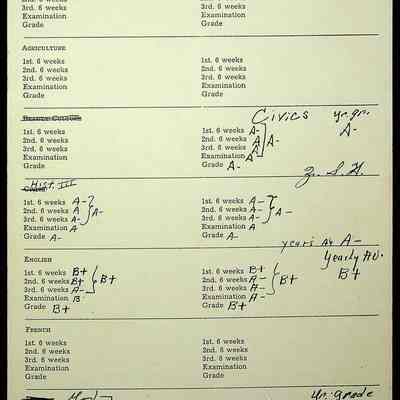 3rd. 6 weeks 3rd. 6 weeks
Examination Examination
Grade Grade
AGRICULTURE
1st. 6 weeks 1st. 6 weeks
2nd. 6 weeks 2nd. 6 weeks
3rd. 6 weeks 3rd. 6 weeks
Examination Examination
Grade Grade
Civics yr. gr.
A-
1st. 6 weeks 1st. 6 weeks A-
2nd. 6 weeks 2nd. 6 weeks A A-
3rd. 6 weeks 3rd. 6 weeks A
Examination Examination A
Grade Grade A-
Hist. III
1st. 6 weeks A- 1st. 6 weeks A-
2nd. 6 weeks A A- 2nd. 6 weeks A- A-
3rd. 6 weeks A- 3rd. 6 weeks A-
Examination A Examination A
Grade A- Grade A-
years av A-
ENGLISH Yearly Av.
B+
1st. 6 weeks B+ 1st. 6 weeks B+
2nd. 6 weeks B+ B+ 2nd. 6 weeks A- B+
3rd. 6 weeks A- 3rd. 6 weeks A-
Examination B Examination B+
Grade B+ Grade B+
FRENCH
1st. 6 weeks 1st. 6 weeks
2nd. 6 weeks 2nd. 6 weeks
3rd. 6 weeks 3rd. 6 weeks
Examination Examination
Grade Grade
Yr. grade